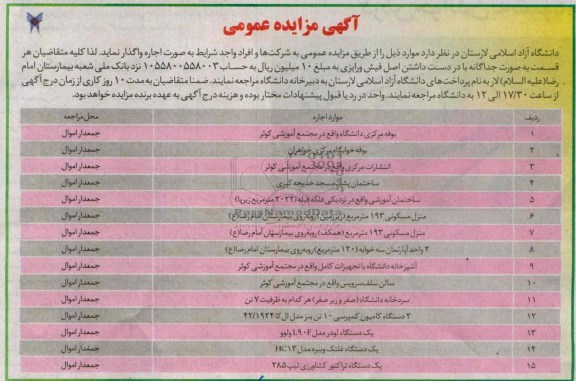 آگهی مزایده عمومی
دانشگاه آزاد اسلامی لارستان در نظر دارد موارد ذیل را از طریق مزایده عمومی به شرکت‌ها و افراد واجد شرایط به صورت اجاره واگذار نماید. لذا کلیه متقاضیان هر
قسمت به صورت جداگانه با در دست داشتن اصل فیش واریزی به مبلغ ۱۰ میلیون ریال به حساب ۱۰۵۵۸۰۰۵۵۸۰۰۳ نزد بانک ملی شعبه بیمارستان امام
رضا(علیه السلام) لار به نام پرداخت‌های دانشگاه آزاد اسلامی لارستان به دبیرخانه دانشگاه مراجعه نمایند. ضمنا متقاضیان به مدت ۱۰ روز کاری از زمان درج آگهی
از ساعت ۱۷/۳۰ الی ۱۲ به دانشگاه مراجعه نمایند. واحد در رد یا قبول پیشنهادات مختار بوده و هزینه درج آگهی به عهده برنده مزایده خواهد بود.
ردیف موارد اجاره محل مراجعه
۱ بوفه مرکزی دانشگاه واقع در مجتمع آموزشی کوثر جمعدار اموال
۲ بوفه خوابگاه مرکزی خواهران جمعدار اموال
۳ انتشارات مرکزی واقع در مجتمع آموزشی کوثر جمعدار اموال
۴ ساختمان پشت مسجد خدیجه کبری جمعدار اموال
۵ ساختمان آموزشی واقع در نزدیکی فلکه قبله (۲۰۲۲ مترمربع زیربنا) جمعدار اموال
۶ منزل مسکونی ۱۹۳ مترمربع (زیرزمین) روبه‌روی بیمارستان امام رضا(ع) جمعدار اموال
۷ منزل مسکونی ۱۹۳ مترمربع (همکف) روبه‌روی بیمارستان امام رضا(ع) جمعدار اموال
۸ ۲ واحد آپارتمان سه خوابه (۱۲۰ مترمربع) روبه‌روی بیمارستان امام رضا(ع) جمعدار اموال
۹ آشپزخانه دانشگاه با تجهیزات کامل واقع در مجتمع آموزشی کوثر جمعدار اموال
۱۰ سالن سلف سرویس واقع در مجتمع آموزشی کوثر جمعدار اموال
۱۱ سردخانه دانشگاه (صفر و زیر صفر) هر کدام به ظرفیت ۷ تن جمعدار اموال
۱۲ ۲ دستگاه کامیون کمپرسی ۱۰ تن بنز مدل ال کا ۴۲/۱۹۲۴ جمعدار اموال
۱۳ یک دستگاه لودر مدل L90F ولوو جمعدار اموال
۱۴ یک دستگاه غلتک ویبره مدل HC13 جمعدار اموال
۱۵ یک دستگاه تراکتور کشاورزی تیپ ۲۸۵ جمعدار اموال